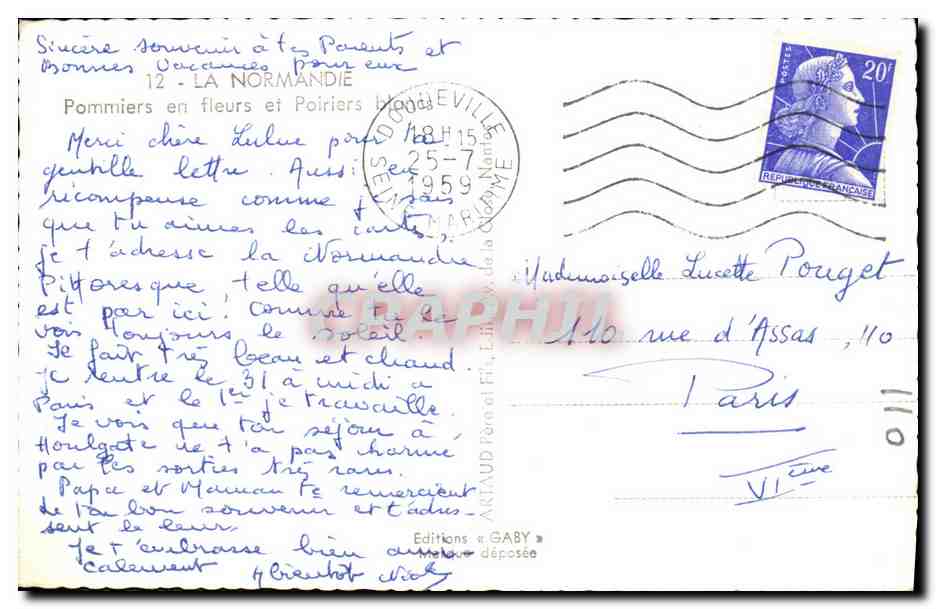 Sincère souvenir à tes Parents et
Bonnes Vacances pour eux
12 - LA NORMANDIE
Pommiers en fleurs et Poiriers blancs
Merci chère Lulue pour ta
gentille lettre. Aussi en
récompense comme je sais
que tu aimes les cartes,
je t'adresse la Normandie
Pittoresque telle qu'elle
est par ici! Comme tu le
vois toujours le soleil.
Il fait très beau et chaud.
Je rentre le 31 à midi à
Paris et le 1er je travaille.
Je vois que ton séjour à
Houlgate ne t'a pas charmé
par les sorties très rares.
Papa et Maman te remercient
de ton bon souvenir et t'adres-
sent le leur.
Je t'embrasse bien ami-
calement A bientôt
DOUDEVILLE
18H15
25-7
1959
SEINE MARITIME
POSTES
20F
REPUBLIQUE FRANCAISE
Mademoiselle Lucette Pouget
110 rue d'Assas, 110
Paris
VIème
011
ARTAUD Père et Fils, de la Nantes
Editions « GABY »
Marque déposée
CPAPHIL